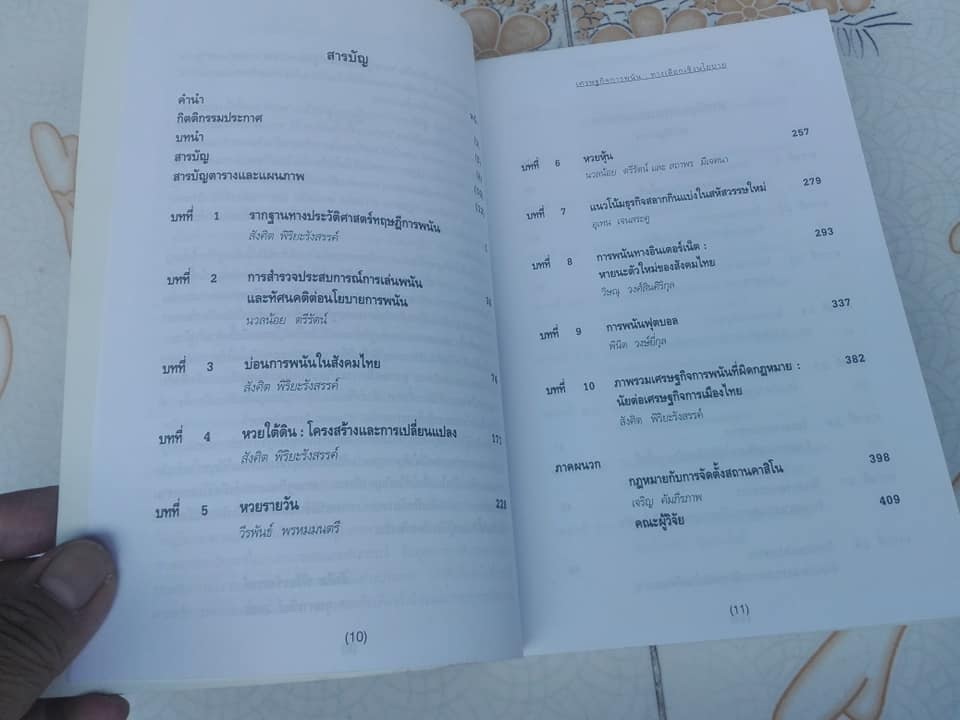 สารบัญ
คำนำ
กิตติกรรมประกาศ
บทนำ
สารบัญ
สารบัญตารางและแผนภาพ
บทที่ 1 รากฐานทางประวัติศาสตร์ทฤษฎีการพนัน
สังศิต พิริยะรังสรรค์
บทที่ 2 การสำรวจประสบการณ์การเล่นพนัน
และทัศนคติต่อนโยบายการพนัน
นวลน้อย ตรีรัตน์
บทที่ 3 บ่อนการพนันในสังคมไทย
สังศิต พิริยะรังสรรค์
บทที่ 4 หวยใต้ดิน : โครงสร้างและการเปลี่ยนแปลง
สังศิต พิริยะรังสรรค์
บทที่ 5 หวยรายวัน
วีรพันธ์ พรหมมนตรี
(10)
เศรษฐกิจการพนัน : ทางเลือกเชิงนโยบาย
บทที่ 6 หวยหุ้น 257
นวลน้อย ตรีรัตน์ และ สถาพร มีเจตนา
บทที่ 7 แนวโน้มธุรกิจสลากกินแบ่งในสหัสวรรษใหม่ 279
อุเทน เจนสระคู
บทที่ 8 การพนันทางอินเตอร์เน็ต : 293
หายนะตัวใหม่ของสังคมไทย
วิษณุ วงศ์สินศิริกุล
บทที่ 9 การพนันฟุตบอล 337
พินิต วงษ์ยี่กุล
บทที่ 10 ภาพรวมเศรษฐกิจการพนันที่ผิดกฎหมาย : 382
นัยต่อเศรษฐกิจการเมืองไทย
สังศิต พิริยะรังสรรค์
ภาคผนวก
กฎหมายกับการจัดตั้งสถานคาสิโน 398
เจริญ คัมภีรภาพ
คณะผู้วิจัย 409
(11)